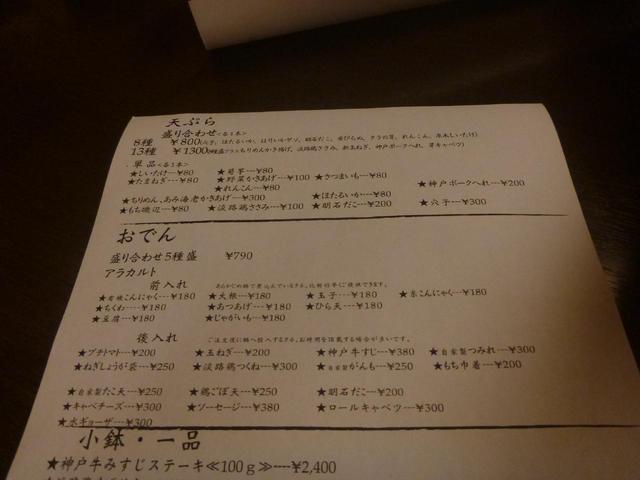 天ぷら
盛り合わせ<各1本>
8種 ￥800
13種 ￥1300
単品<各1本>
★しいたけ---￥80 ★菊芋---￥80
★たまねぎ---￥80 ★野菜かきあげ---￥100 ★さつまいも---￥80
★れんこん---￥80 ★神戸ポークへれ---￥200
★ちりめん、あみ海老かきあげ---￥300 ★ほたるいか---￥80
★もち磯辺---￥80 ★淡路鶏ささみ---￥100 ★明石だこ---￥200 ★穴子---￥300
おでん
盛り合わせ5種盛 ￥790
アラカルト
前入れ
★有機こんにゃく---￥180 ★大根---￥180 ★玉子---￥180 ★糸こんにゃく---￥180
★ちくわ---￥180 ★あつあげ---￥180 ★ひら天---￥180
★豆腐---￥180 ★じゃがいも---￥180
後入れ ご注文後に鍋へ投入するタネ。お時間を頂戴する場合が多いです。
★プチトマト---￥200 ★玉ねぎ---￥200 ★神戸牛すじ---￥380 ★自家製つみれ---￥300
★ねぎしょうが袋---￥250 ★淡路鶏つくね---￥300 ★自家製がんも---￥250 ★もち巾着---￥200
★自家製たこ天---￥250 ★鶏ごぼ天---￥250 ★明石だこ---￥200
★キャベチーズ---￥300 ★ソーセージ---￥380 ★ロールキャベツ---￥300
★水ギョーザ---￥300
小鉢・一品
★神戸牛みすじステーキ≪100g≫----￥2,400